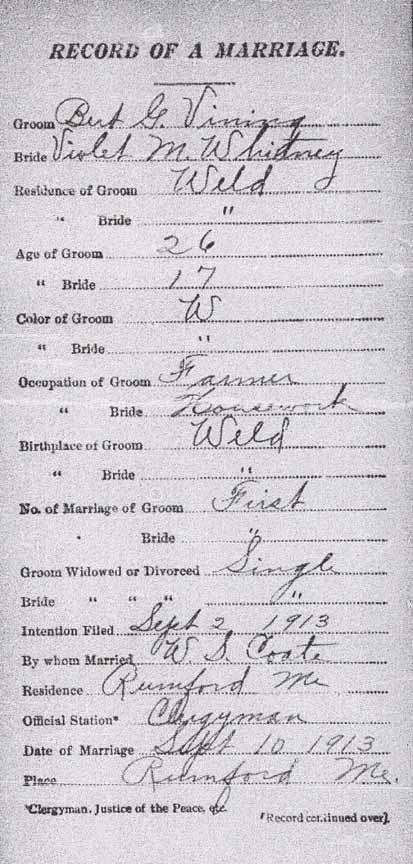 RECORD OF A MARRIAGE.
Groom Bert G. Vining
Bride Violet M. Whitney
Residence of Groom Weld
" Bride "
Age of Groom 26
" Bride 17
Color of Groom W
" Bride "
Occupation of Groom Farmer
" Bride Housework
Birthplace of Groom Weld
" Bride "
No. of Marriage of Groom First
" Bride "
Groom Widowed or Divorced Single
Bride " " " "
Intention Filed Sept 2 1913
By whom Married W. S. Coate
Residence Rumford Me
Official Station* Clergyman
Date of Marriage Sept 10 1913
Place Rumford Me.
*Clergyman, Justice of the Peace, etc.
[Record continued over].